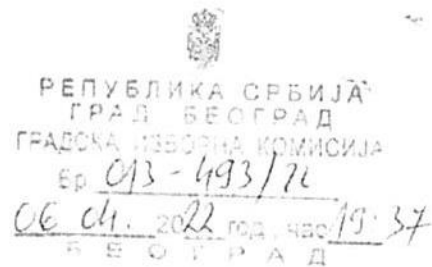 РЕПУБЛИКА СРБИЈА
ГРАД БЕОГРАД
ГРАДСКА ИЗБОРНА КОМИСИЈА
Бр. 013-493/22
06 04. 2022 год., час 19.37
БЕОГРАД